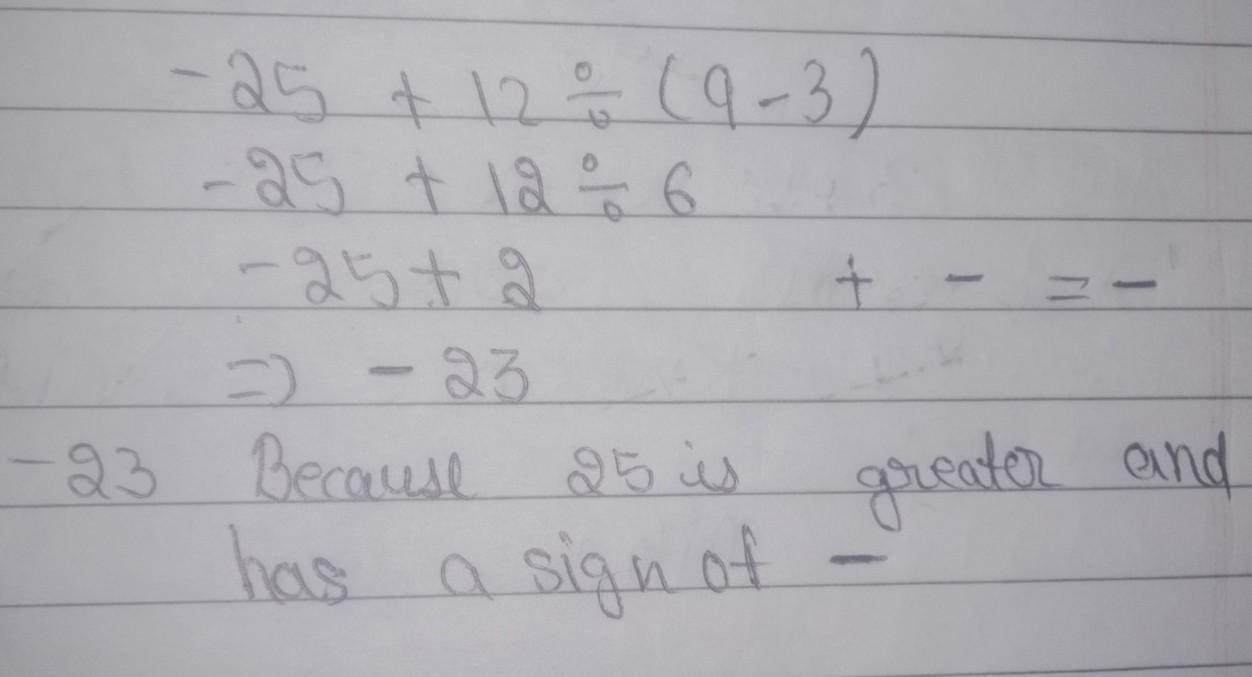 -25 + 12 ÷ (9-3)
-25 + 12 ÷ 6
-25+ 2 + - = -
=> - 23
-23 Because 25 is greater and
has a sign of -